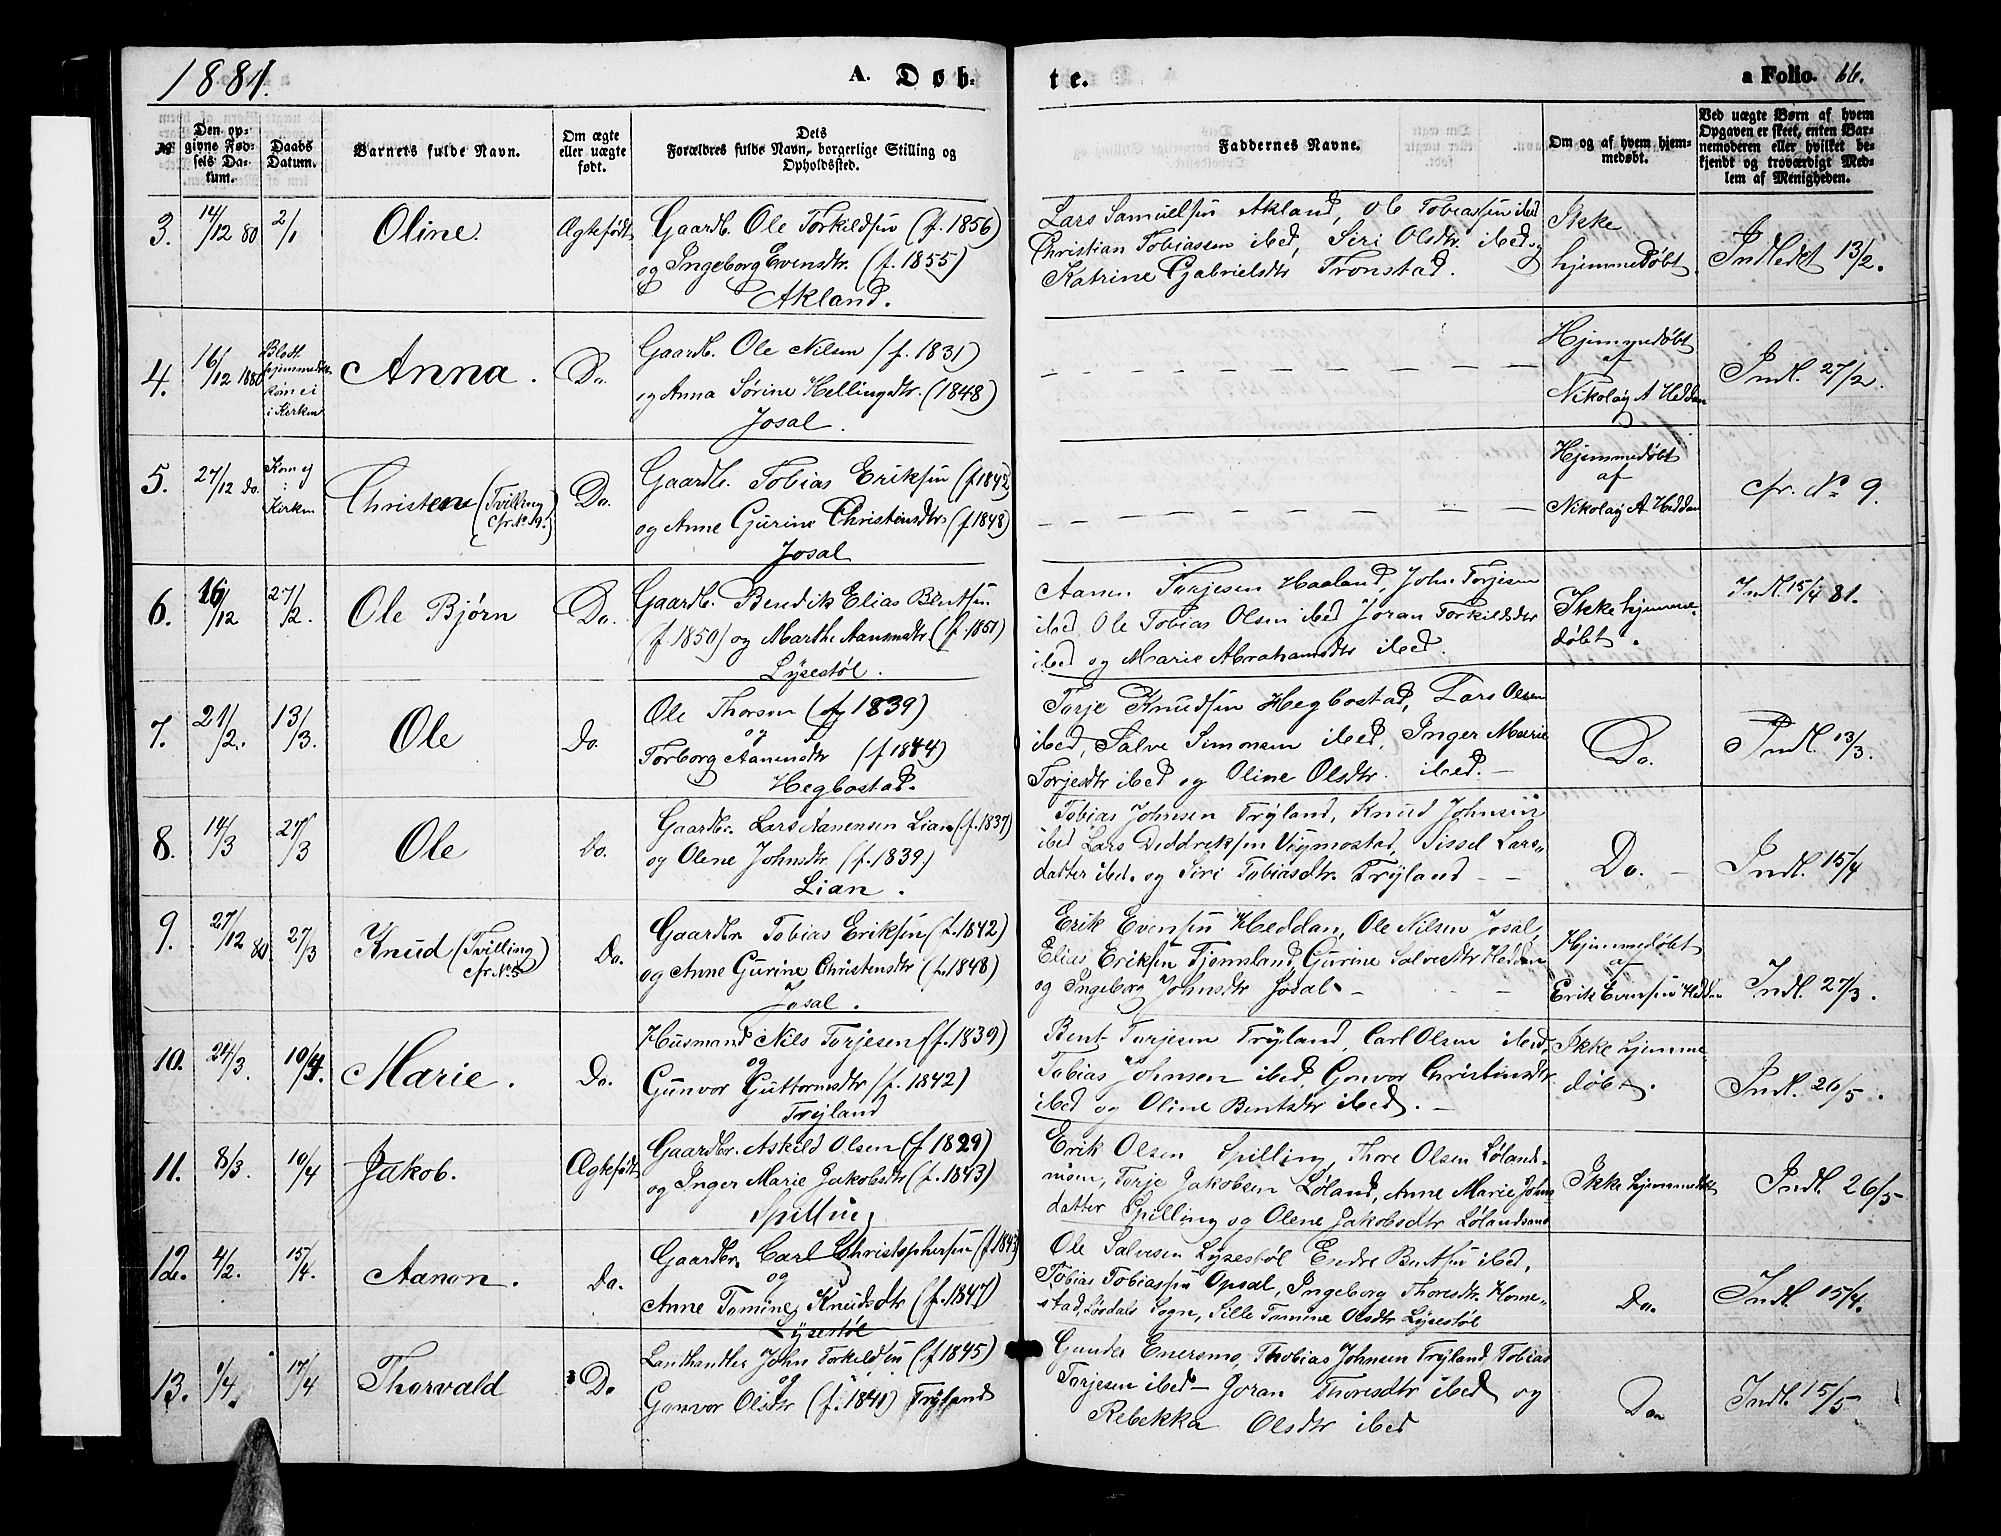 1881.
A. Døb-
te.
a Folio. 66.
№
Den op-
givne Fød-
sels Da-
tum.
Daabs
Datum.
Barnets fulde Navn.
Om ægte
eller uægte
født.
Dets
Forældres fulde Navn, borgerlige Stilling og
Opholdssted.
Faddernes Navne.
Om og af hvem hjem-
medøbt.
Ved uægte Børn af hvem
Opgaven er skeet, enten Bar-
nemoderen eller hvilket be-
kjendt og troværdigt Med-
lem af Menigheden.
3. 14/12 80 2/1 Oline. Ægtefødt
Gaardb. Ole Torkildsen (f. 1856)
og Ingeborg Evensdtr. (f. 1855)
Akland.
Lars Samuelsen Akland, Ole Tobiassen ibed
Christian Tobiassen ibed, Siri Olsdtr. ibed og
Katrine Gabrielsdtr Tronstad.
Ikke
hjemmedøbt.
Indledet 13/2.
4. 16/12 1880
Blot
hjemmedøbt
kom ei
i Kirken
Anna. Do.
Gaardb. Ole Nilsen (f. 1831)
og Anna Sørine Hellingsdtr. (1848)
Josal.
Hjemmedøbt
af
Nikolay A Heddan
Indl. 27/2.
5. 27/12 Do.
Kom ej
i
Kirken
Christen (Tvilling
cfr. No 9.)
Do.
Gaardb. Tobias Eriksen (f 1842)
og Anne Gurine Christensdtr. (f. 1848)
Josal
Hjemmedøbt
af
Nikolay A Heddan
cfr. No 9.
6. 16/12 27/2. Ole Bjørn Do.
Gaardb. Bendik Elias Bentsen
f. 1850) og Marthe Aanensdtr (f. 1851)
Lysestøl.
Aanen Torjesen Haaland, John Torjesen
ibed Ole Tobias Olsen ibed Joran Torkildsdtr
ibed og Marie Abrahamsdtr ibed.
Ikke hjemme-
døbt.
Indl. 15/4 81.
7. 21/2. 13/3. Ole Do.
Ole Thorsen (f 1839)
og
Torborg Aanensdtr (f 1844)
Hegbostad.
Torje Knudsen Hegbostad, Lars Olsen
ibed, Salve Simonsen ibed, Inger Marie
Torjesdtr ibed og Oline Olsdtr. ibed.
Do.
Indl. 13/3.
8. 14/3 27/3 Ole Do.
Gaardbr. Lars Aanensen Lian (f. 1837)
og Olene Johnsdtr (f. 1839)
Lian.
Tobias Johnsen Trÿland, Knud Johnsen
ibed Lars Diddriksen Vigmostad, Sissel Lars-
datter ibed. og Siri Tobiasdtr. Trÿland
Do.
Indl. 15/4
9. 27/12 80 27/3 Knud (Tvilling
cfr No 5)
Do.
Gaardbr. Tobias Eriksen (f. 1842)
og Anne Gurine Christensdtr (f. 1848)
Josal.
Erik Evensen Heddan, Ole Nilsen Josal,
Elias Eriksen Tjomsland, Gurine Salvesdtr Heddan
og Ingeborg Johnsdtr Josal.
Hjemmedøbt
af
Erik Evensen Heddan
Indl. 27/3.
10. 24/3. 10/4. Marie. Do.
Husmand Nils Torjesen (f. 1839)
og
Gunvor Guttormsdtr (f. 1842)
Trÿland
Bent Torjesen Trÿland, Carl Olsen ibed,
Tobias Johnsen ibed, Gonvor Christensdtr
ibed og Oline Bentsdtr ibed.
Ikke hjemme
døbt.
Indl. 26/5.
11. 8/3. 10/4 Jakob. Ægtefødt
Gaardbr. Askild Olsen (f 1829)
og Inger Marie Jakobsdtr (f. 1843)
Spilling
Erik Olsen Spilling, Thore Olsen Løland-
mom, Torje Jakobsen Løland, Anne Marie Johns
datter Spilling og Olene Jakobsdtr Lølandsmo
Ikke hjemmedøbt
Indl. 26/5
12. 4/2. 15/4. Aanon. Do.
Gaardbr. Carl Christophersen (f. 1843)
og
Anne Tomine Knudsdtr (f. 1847)
Lysestøl
Ole Salvesen Lysestøl Endre Bentsen ibed,
Tobias Tobiassen Opsal, Ingeborg Thoresdtr. Home-
stad, Løvdals Sogn, Sille Tomine Olsdtr Lysestøl
Do.
Indl. 15/4.
13. 9/4. 17/4 Thorvald Do
Lanthandler John Torkildsen (f 1845)
og
Gonvor Olsdtr (f. 1841) Trÿland
Gunder Enersmo, Thobias Johnsen Trÿland Tobias
Torjesen ibed - Joran Thoresdtr ibed og
Rebekka Olsdtr ibed
Do
Indl. 15/5